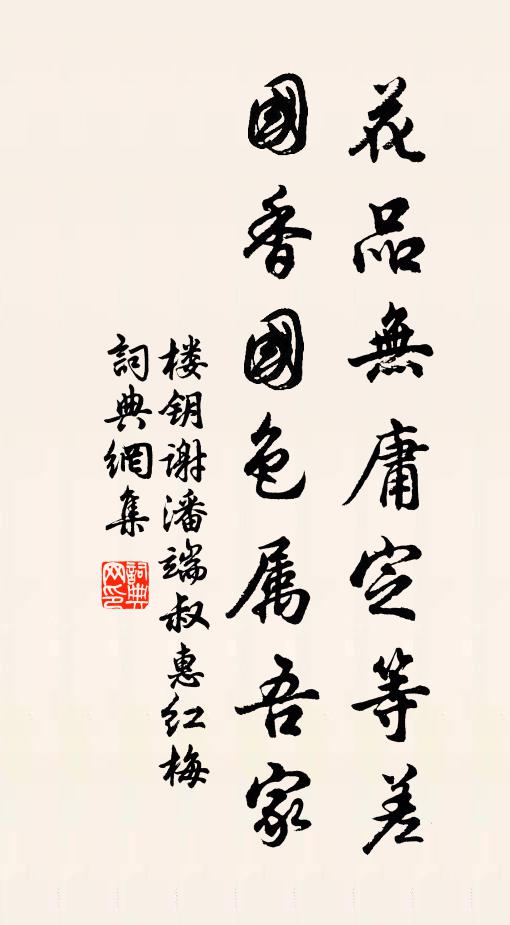 花品無庸定等差
國香國色属吾家
楼钥谢潘端叔惠红梅
詞典網集
詞典网印